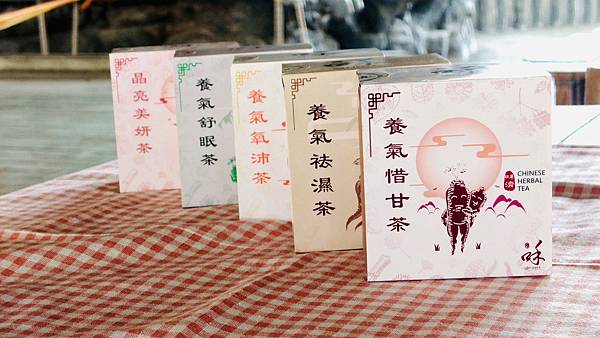 晶亮美妍茶
養氣舒眠茶
養氣氧沛茶
養氣祛濕茶
養氣惜甘茶
CHINESE
HERBAL
TEA